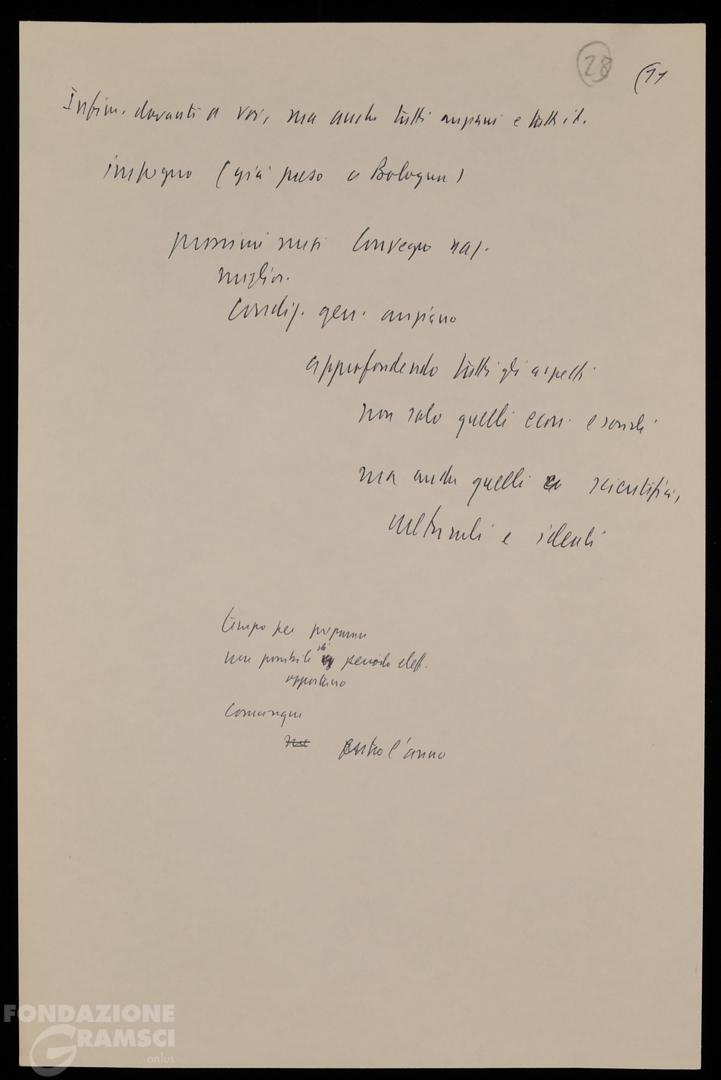 28
Infin. davanti a voi, ma anche tutti anziani e tutti it.
impegno (già preso a Bologna)
prossimi mesi Convegno naz.
miglior.
condiz. gen. anziano
approfondendo tutti gli aspetti
non solo quelli econ. e sociali
ma anche quelli scientifici,
culturali e ideali
tempo per preparare
non possibile periodo elett.
opportuno
comunque
entro l'anno
FONDAZIONE
GRAMSCI
onlus